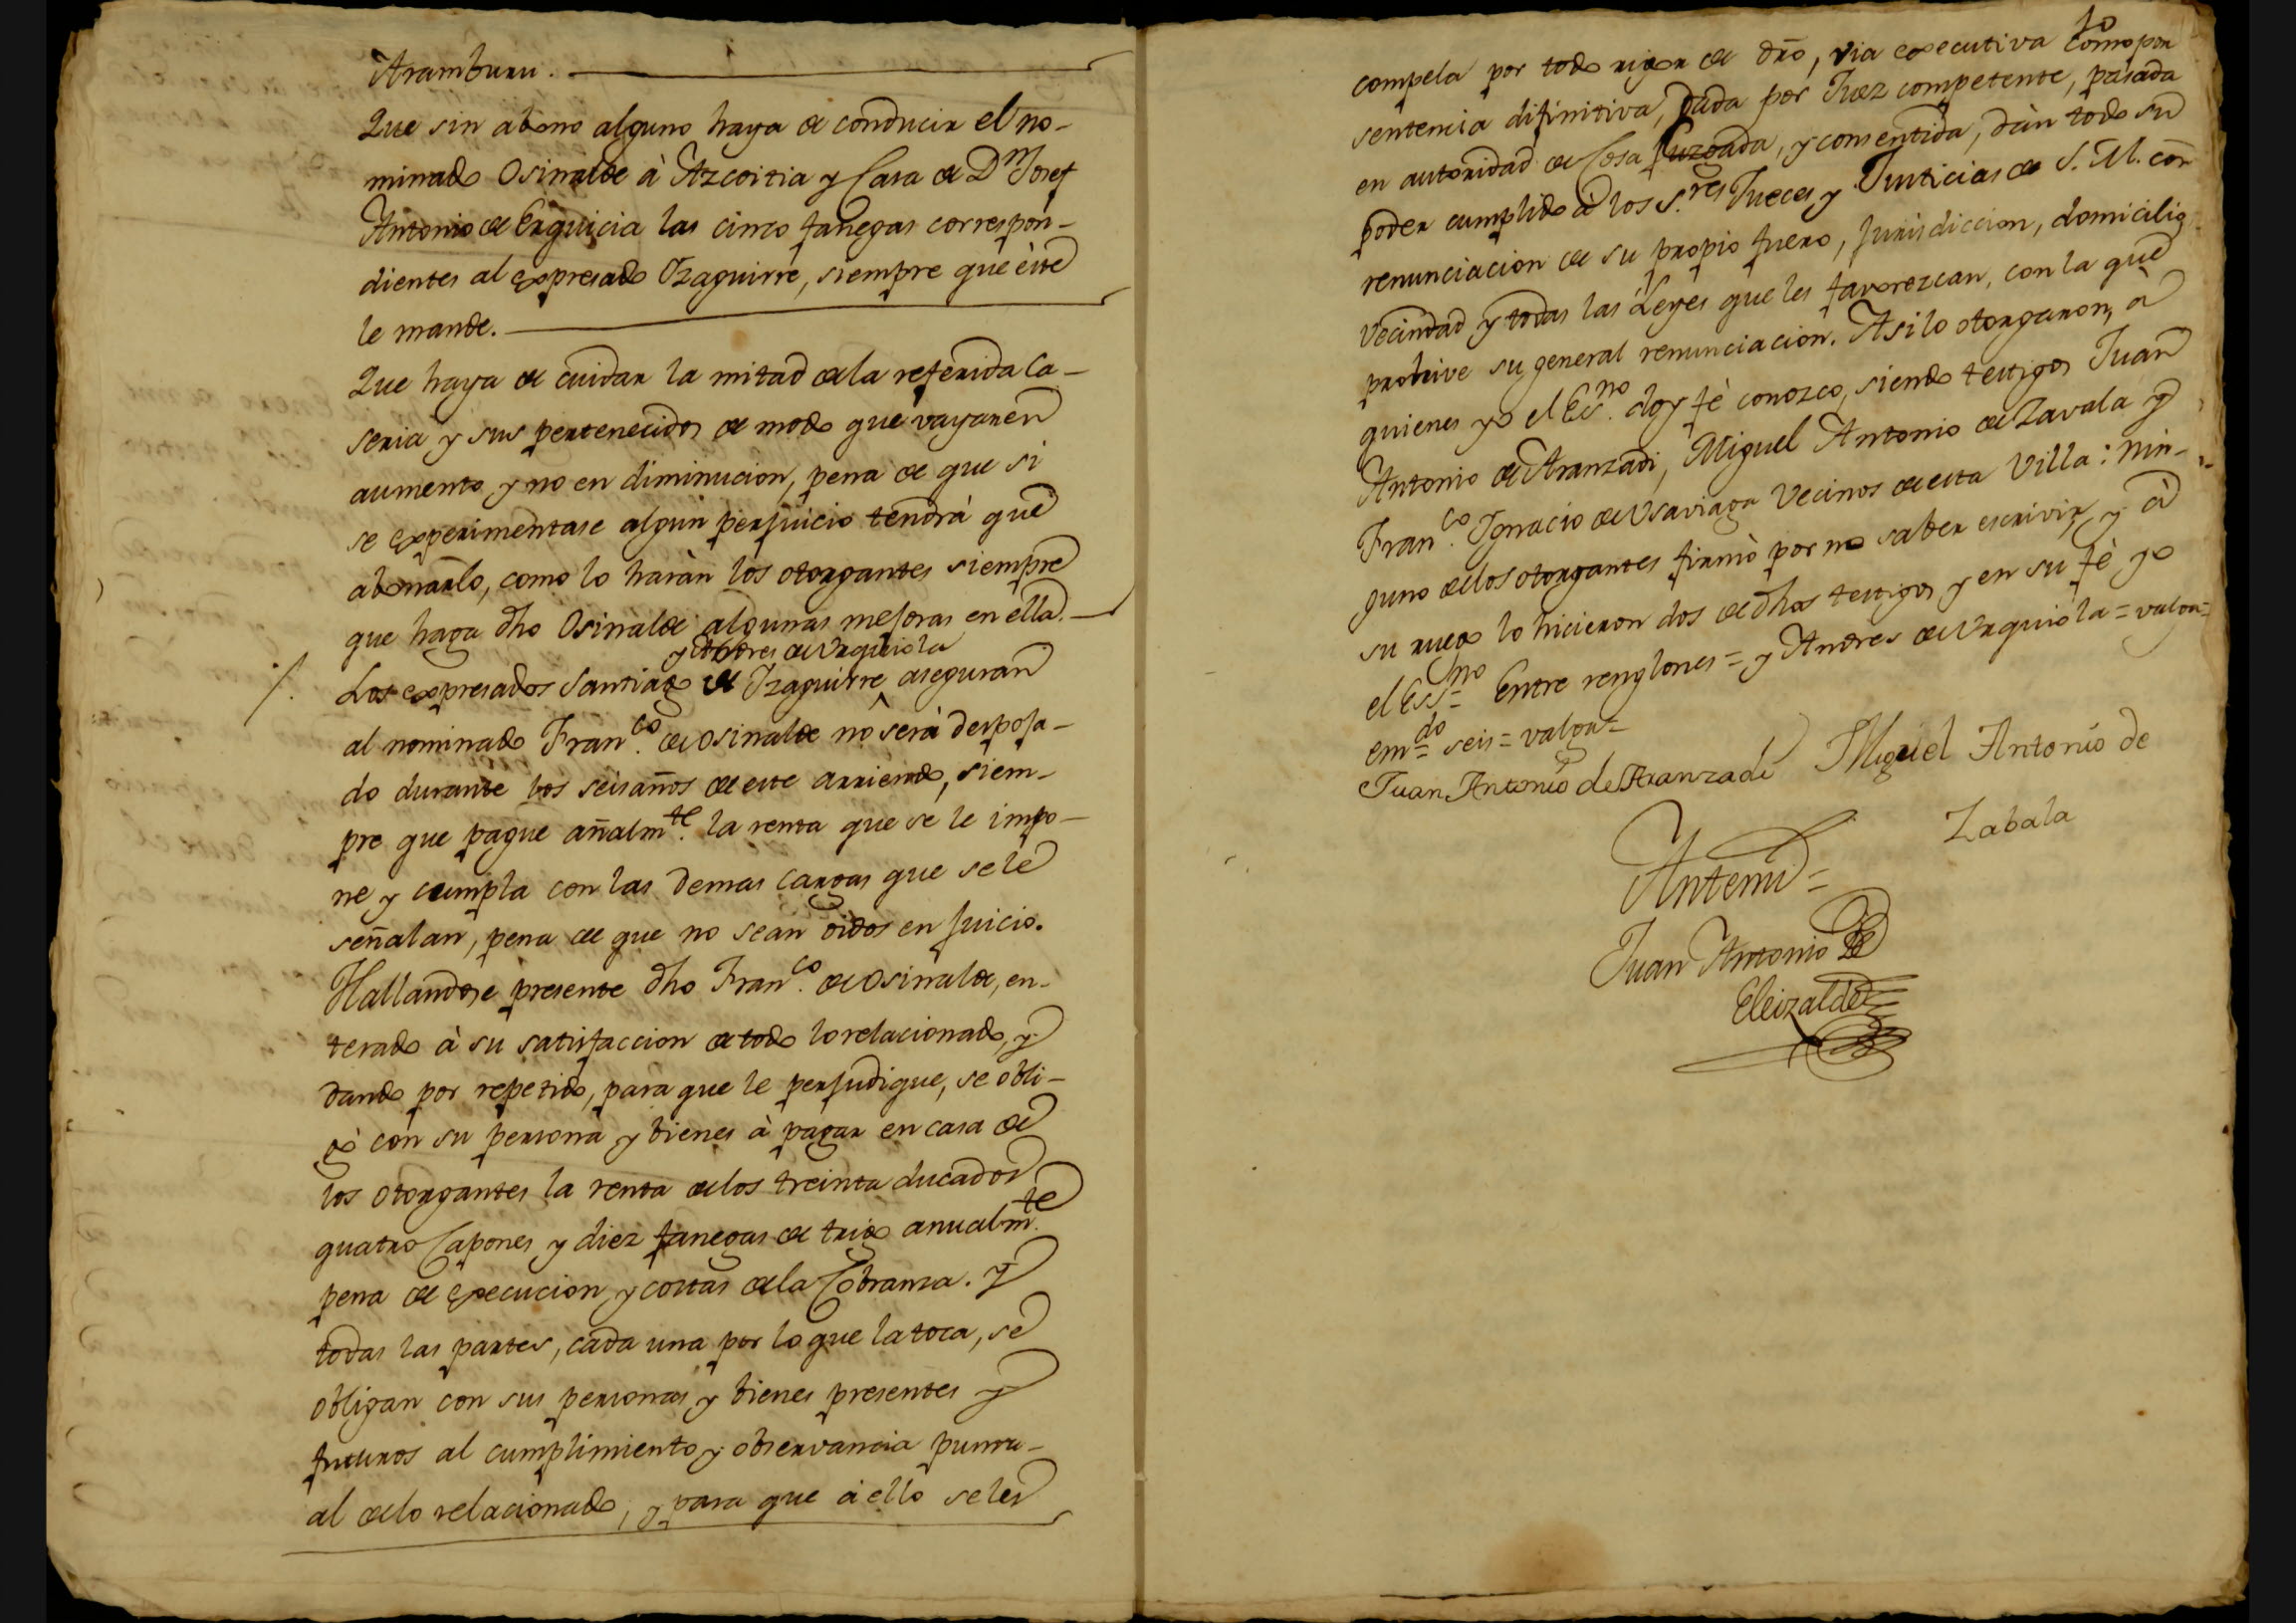 Aramburu.
Que sin abono alguno haya de conducir el no-
minado Osinalde à Azcoitia y Casa de Dn Josef
Antonio de Erquicia las cinco fanegas correspon-
dientes al expresado Yzaguirre, siempre que èste
le mande.
Que haya de cuidar la mitad de la referida Ca-
seria y sus pertenecidos de modo que vayan en
aumento, y no en diminucion, pena de que si
se experimentase algun perjuicio tendrà que
abonarlo, como lo haràn los otorgantes siempre
que haga dho Osinalde algunas mejoras en ella.
y Andres de Urquiola
Los expresados Santiago de Yzaguirre ^ aseguran
al nominado Franco. de Osinalde no serà despoja-
do durante los seis años de este arriendo, siem-
pre que pague añalmte. la renta que se le impo-
ne y cumpla con las demas cargas que se le
señalan, pena de que no sean oidos en juicio.
Hallandose presente dho Franco. de Osinalde, en-
terado à su satisfaccion de todo lo relacionado, y
dando por repetido, para que le perjudique, se obli-
gò con su persona y bienes à pagar en casa de
los otorgantes la renta de los treinta ducados
quatro Capones y diez fanegas de trigo anualmte.
pena de execucion y costas de la Cobranza. Y
todas las partes, cada una por lo que la toca, se
obligan con sus personas y bienes presentes y
futuros al cumplimiento y observancia puntu-
al de lo relacionado, y para que à ello se les
compela por todo rigor de dro, via executiva como por
sentencia difinitiva, dada por Juez competente, pasada
en autoridad de Cosa Juzgada, y consentida, dàn todo su
poder cumplido à los S.res Jueces y Justicias de S. M. con
renunciacion de su propio fuero, jurisdiccion, domicilio
vecindad y todas las Leyes que les favorezcan, con la que
prohive su general renunciacion. Asi lo otorgaron, à
quienes yo el Esno. doy fè conozco, siendo testigos Juan
Antonio de Aranzadi, Miguel Antonio de Zavala y
Franco. Ygnacio de Usaviaga Vecinos de esta Villa: nin-
guno de los otorgantes firmò por no saber escrivir, y à
su ruego lo hicieron dos de dhos testigos y en su fè yo
el Essno= Entre renglones = y Andres de Urquiola = valga=
emdo= seis = valga=
Juan Antonio de Aranzadi Miguel Antonio de
Zabala
Antemi =
Juan Antonio de
Eleizalde